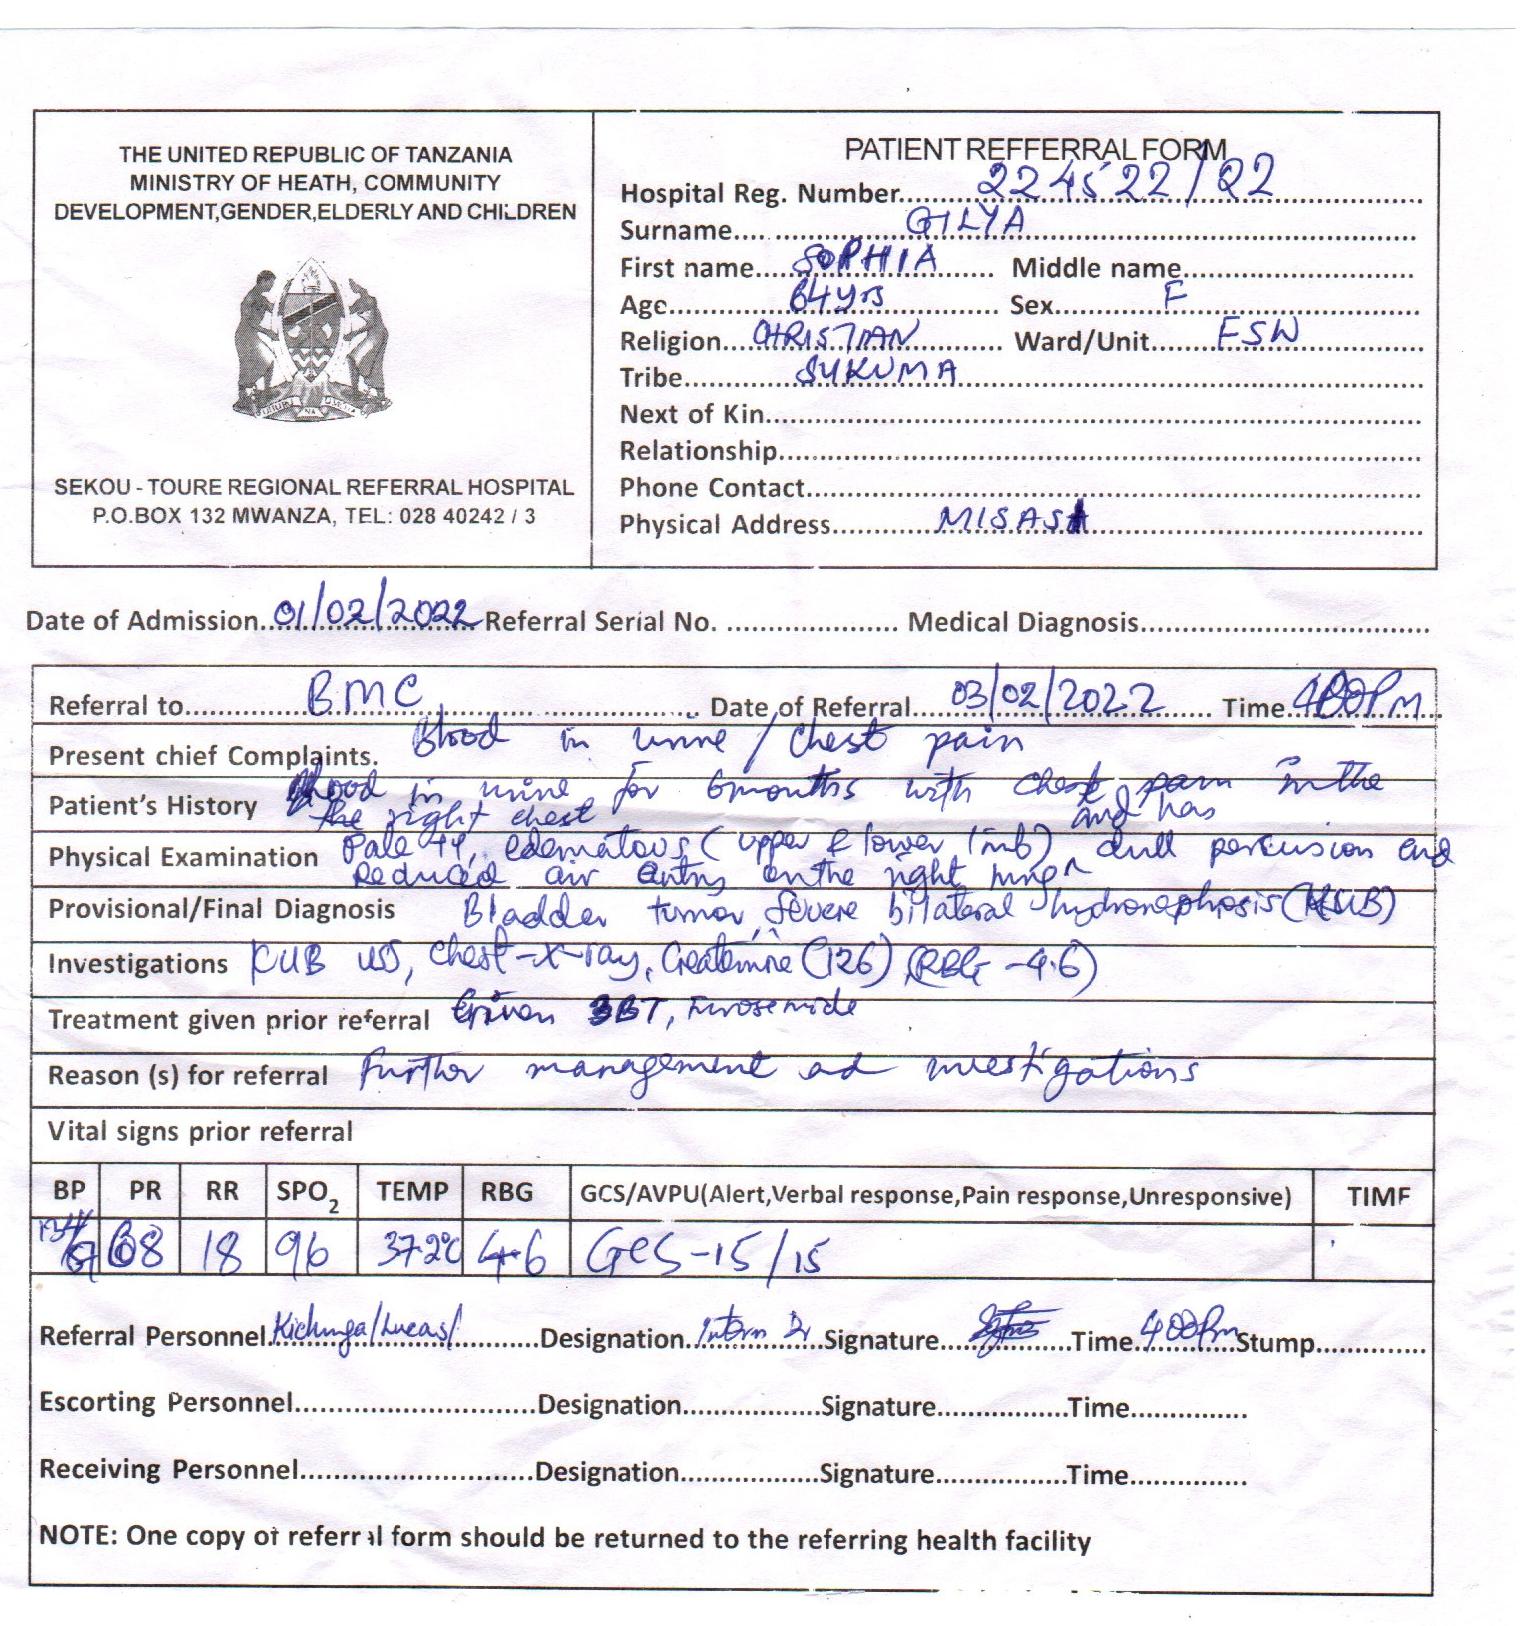 THE UNITED REPUBLIC OF TANZANIA
MINISTRY OF HEATH, COMMUNITY
DEVELOPMENT,GENDER,ELDERLY AND CHILDREN
UHURU NA UMOJA
SEKOU - TOURE REGIONAL REFERRAL HOSPITAL
P.O.BOX 132 MWANZA, TEL: 028 40242 / 3
PATIENT REFFERRAL FORM
Hospital Reg. Number 224522/22
Surname GILYA
First name SOPHIA Middle name
Age 64yrs Sex F
Religion CHRISTIAN Ward/Unit FSW
Tribe SUKUMA
Next of Kin
Relationship
Phone Contact
Physical Address MISASA
Date of Admission 01/02/2022 Referral Serial No. Medical Diagnosis
Referral to BMC Date of Referral 03/02/2022 Time 400PM
Present chief Complaints. Blood in urine / chest pain
Patient's History Blood in urine for 6months with chest pain in the
the right chest
and has
Physical Examination Pale, edematous (upper & lower limb) dull percusion and
Reduced air entry on the right lung ^
Provisional/Final Diagnosis Bladder tumor, severe bilateral hydronephosis (KUB)
Investigations KUB US, chest-x-ray, Creatinine (126) (RBG -4.6)
Treatment given prior referral Given 3BT, Furosemide
Reason (s) for referral Further management ad investigations
Vital signs prior referral
BP PR RR SPO2 TEMP RBG GCS/AVPU(Alert,Verbal response,Pain response,Unresponsive) TIMF
68 18 96 37.2°C 4.6 GCS-15/15
Referral Personnel Kichunga/Lucas/ Designation Intern Dr Signature Time 400Pm Stump
Escorting Personnel Designation Signature Time
Receiving Personnel Designation Signature Time
NOTE: One copy of referral form should be returned to the referring health facility